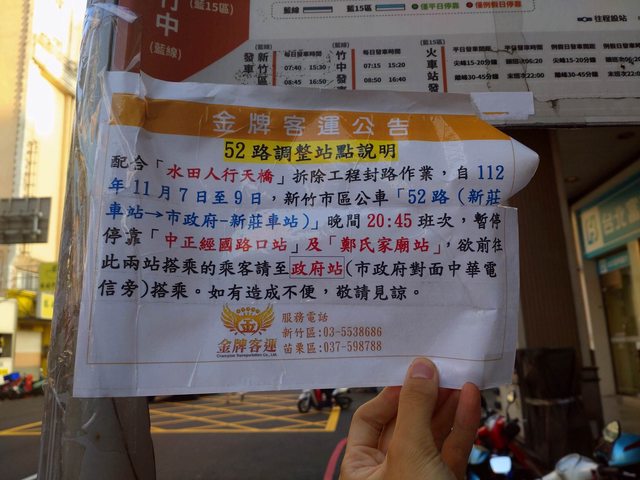 藍15區
竹中
(藍線)
藍線
藍15區
僅平日停靠
僅例假日停靠
往程設站
(藍線)
新竹區
發車
每日發車時間
07:40 . 15:30
08:45 . 16:50
(藍線)
竹中發車
每日發車時間
07:15 . 15:20
08:50 . 16:40
藍15區
火車站發
平日發車時間
尖峰15-20分鐘
離峰30-45分鐘
例假日發車時間
尖峰15-20分鐘
離峰30-45分鐘
平日發車時間
末班次22:00
金牌客運公告
52路調整站點說明
配合「水田人行天橋」拆除工程封路作業，自112
年11月7日至9日，新竹市區公車「52路（新莊
車站→市政府-新莊車站)」晚間20:45班次，暫停
停靠「中正經國路口站」及「鄭氏家廟站」，欲前往
此兩站搭乘的乘客請至政府站(市政府對面中華電
信旁)搭乘。如有造成不便，敬請見諒。
金牌客運
Champion Transportation Co., Ltd.
服務電話
新竹區:03-5538686
苗栗區:037-598788
台北富